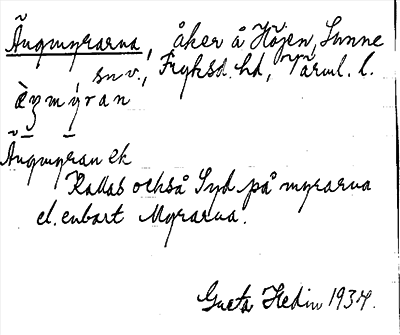 Ängmyrarna, åker å Höjen, Sunne
sn v., Fryksd. hd, Värml. l.
æ̀ŋmýran
Ängmyran ek
Kallas också Syd på myrarna
el. enbart Myrarna.
Greta Hedin 1934.